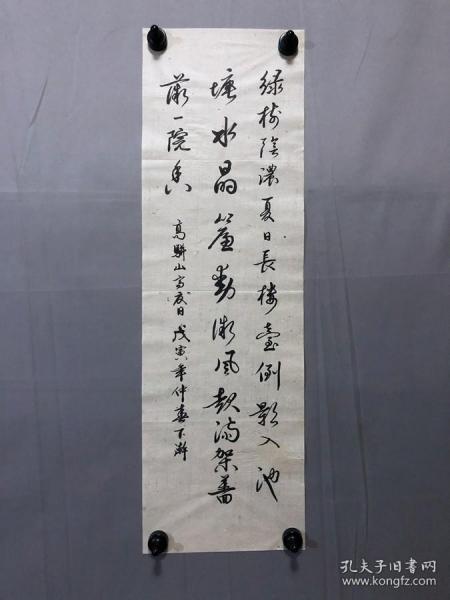 绿树陰濃夏日長楼臺倒影入池
塘水晶簾動微風起滿架薔
薇一院香
高駢山亭夏日 戊寅年仲春下澣
孔夫子旧书网
www.kongfz.com